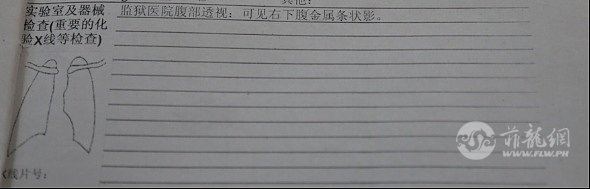 其他：
实验室及器械
检查(重要的化
验X线等检查)
监狱医院腹部透视：可见右下腹金属条状影。
X线片号：
菲龍網
WWW.FLW.PH